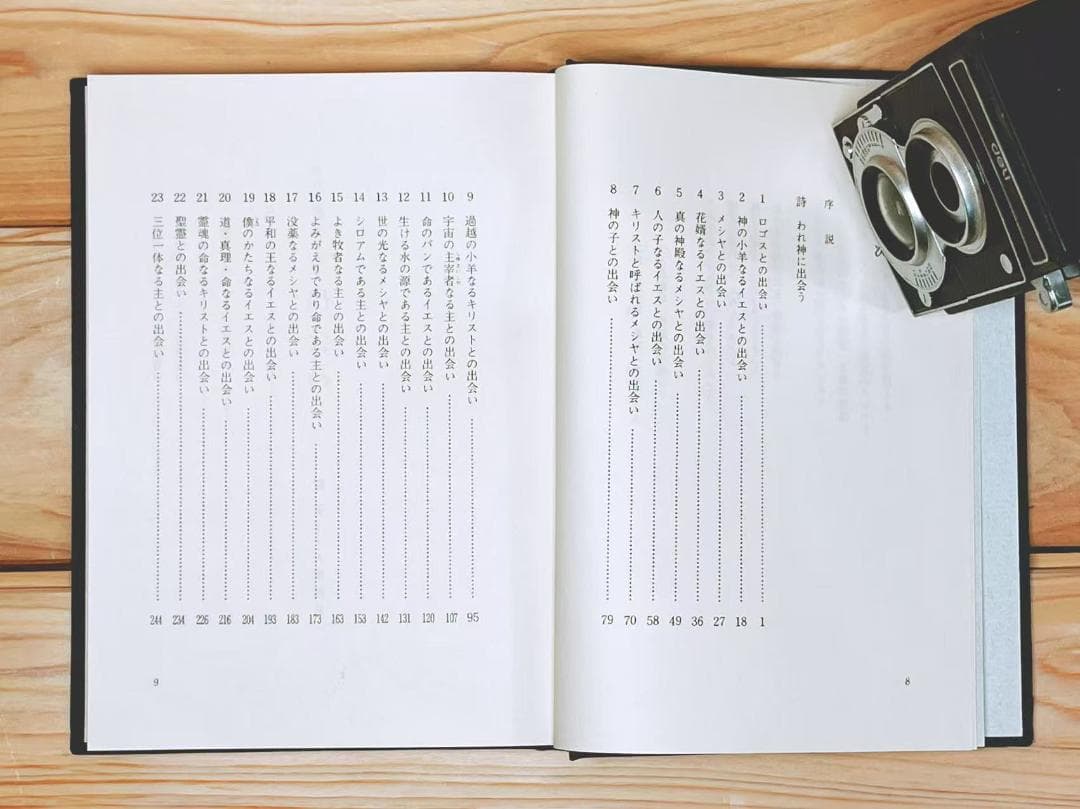 序説
詩 われ神に出会う
1 ロゴスとの出会い 1
2 神の小羊なるイエスとの出会い 18
3 メシヤとの出会い 27
4 花婿なるイエスとの出会い 36
5 真の神殿なるメシヤとの出会い 49
6 人の子なるイエスとの出会い 58
7 キリストと呼ばれるメシヤとの出会い 70
8 神の子との出会い 79
8
9 過越の小羊なるキリストとの出会い 95
10 宇宙の主宰者なる主との出会い 107
11 命のパンであるイエスとの出会い 120
12 生ける水の源である主との出会い 131
13 世の光なるメシヤとの出会い 142
14 シロアムである主との出会い 153
15 よき牧者なる主との出会い 163
16 よみがえりであり命である主との出会い 173
17 没薬なるメシヤとの出会い 183
18 平和の王なるイエスとの出会い 193
19 僕のかたちなるイエスとの出会い 204
20 道・真理・命なるイエスとの出会い 216
21 霊魂の命なるキリストとの出会い 226
22 聖霊との出会い 234
23 三位一体なる主との出会い 244
9
deli